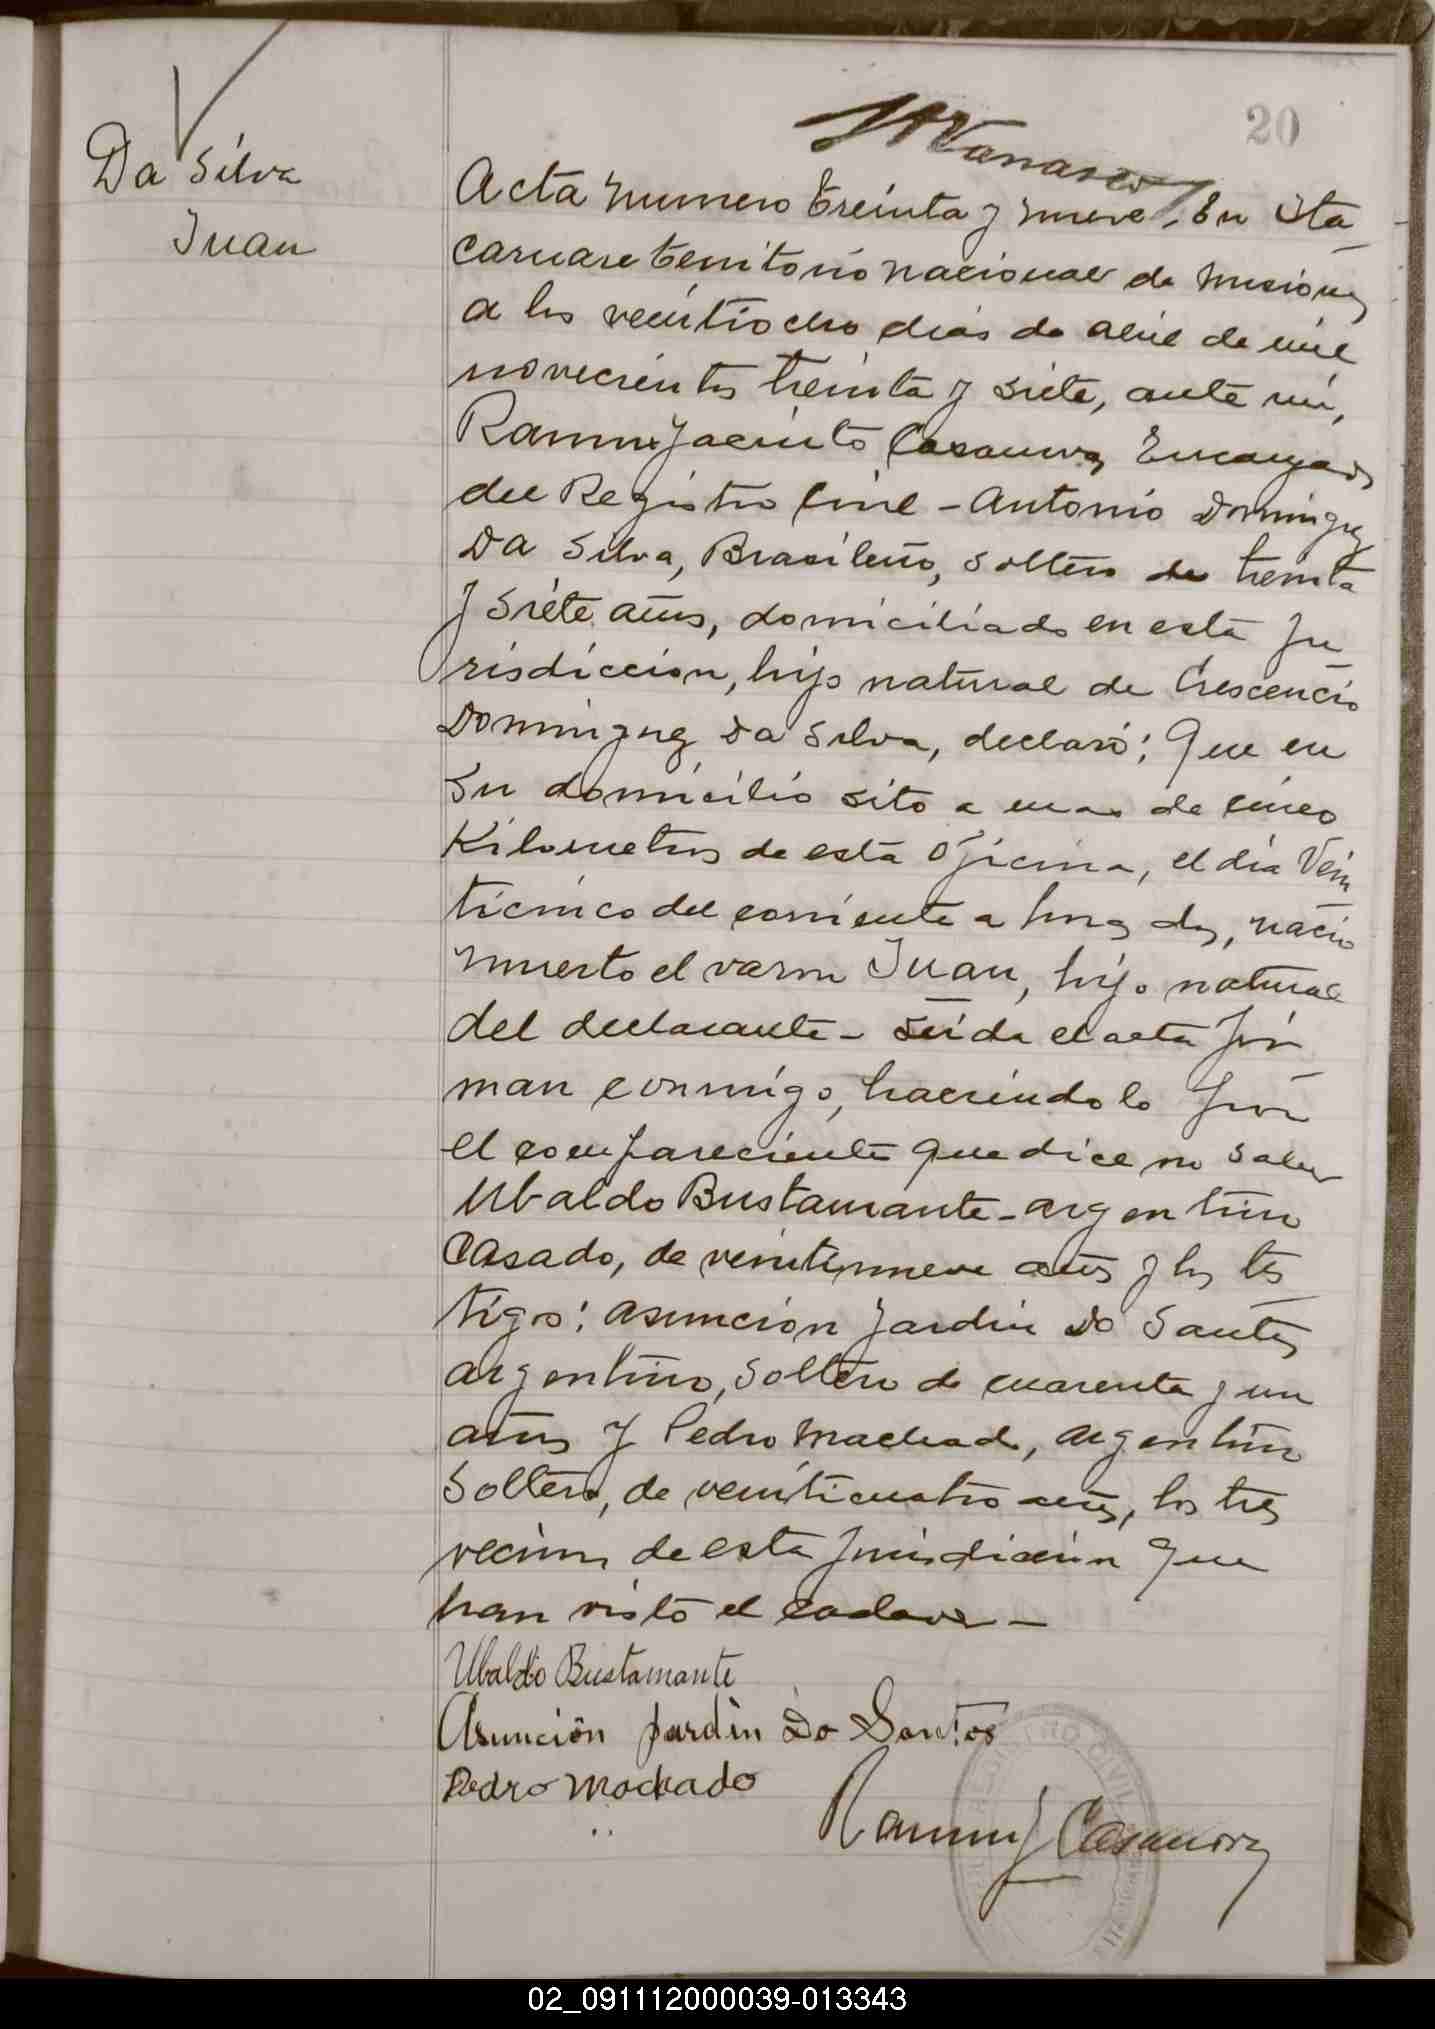 20
Da Silva
Juan
Acta Numero treinta y nueve. En Ita
caruare territorio nacional de Misiones
a los veintiocho dias de abril de mil
novecientos treinta y siete, ante mi,
Ramon Jacinto Casanova, Encargado
del Registro Civil - Antonio Dominguez
Da Silva, Brasileño, soltero de treinta
y siete años, domiciliado en esta ju
risdiccion, hijo natural de Crescencio
Dominguez Da Silva, declaró: Que en
su domicilio sito a mas de cinco
Kilometros de esta Oficina, el dia Vein
ticinco del corriente a horas dos, nació
muerto el varon Juan, hijo natural
del declarante - Leida el acta fir
man conmigo, haciendolo por
el compareciente que dice no saber
Ubaldo Bustamante - argentino
casado, de veintinueve años y los tes
tigos: Asuncion Jardin Do Santos
argentino, soltero de cuarenta y un
años y Pedro Machado, argentino
soltero, de veinticuatro años, los tres
vecinos de esta jurisdiccion que
han visto el cadaver -
Ubaldo Bustamante
Asunción Jardin Do Santos
Pedro Machado
Ramon J Casanova
REGISTRO CIVIL
02_091112000039-013343